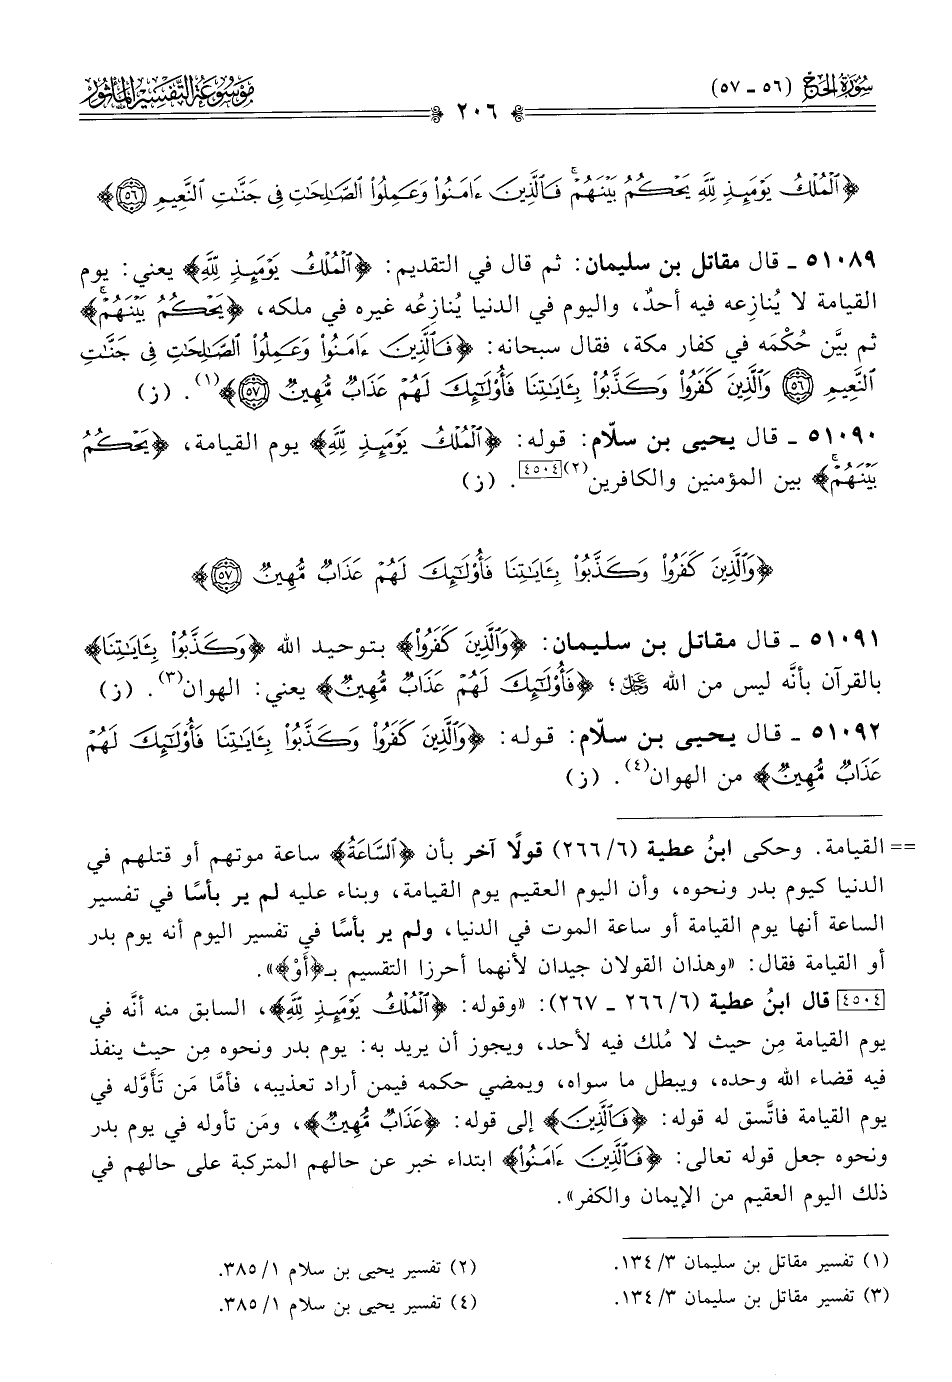 سُورَةُ الحَجّ (٥٦ - ٥٧)
٢٠٦
مَوْسُوعَةُ التَّفْسِيرِ المَأْثُور
﴿ٱلْمُلْكُ يَوْمَئِذٍ لِّلَّهِ يَحْكُمُ بَيْنَهُمْۚ فَٱلَّذِينَ ءَامَنُوا۟ وَعَمِلُوا۟ ٱلصَّـٰلِحَـٰتِ فِى جَنَّـٰتِ ٱلنَّعِيمِ ٥٦﴾
٥١٠٨٩ - قال مقاتل بن سليمان: ثم قال في التقديم: ﴿ٱلْمُلْكُ يَوْمَئِذٍ لِّلَّهِ﴾ يعني: يوم
القيامة لا يُنازِعه فيه أحدٌ، واليوم في الدنيا يُنازِعُه غيره في ملكه، ﴿يَحْكُمُ بَيْنَهُمْۚ﴾
ثم بيَّن حُكْمَه في كفار مكة، فقال سبحانه: ﴿فَٱلَّذِينَ ءَامَنُوا۟ وَعَمِلُوا۟ ٱلصَّـٰلِحَـٰتِ فِى جَنَّـٰتِ
ٱلنَّعِيمِ ٥٦ وَٱلَّذِينَ كَفَرُوا۟ وَكَذَّبُوا۟ بِـَٔايَـٰتِنَا فَأُو۟لَـٰٓئِكَ لَهُمْ عَذَابٌ مُّهِينٌ ٥٧﴾(١). (ز)
٥١٠٩٠ - قال يحيى بن سلّام: قوله: ﴿ٱلْمُلْكُ يَوْمَئِذٍ لِّلَّهِ﴾ يوم القيامة، ﴿يَحْكُمُ
بَيْنَهُمْۚ﴾ بين المؤمنين والكافرين(٢)[٤٥٠٤]. (ز)
﴿وَٱلَّذِينَ كَفَرُوا۟ وَكَذَّبُوا۟ بِـَٔايَـٰتِنَا فَأُو۟لَـٰٓئِكَ لَهُمْ عَذَابٌ مُّهِينٌ ٥٧﴾
٥١٠٩١ - قال مقاتل بن سليمان: ﴿وَٱلَّذِينَ كَفَرُوا۟﴾ بتوحيد الله ﴿وَكَذَّبُوا۟ بِـَٔايَـٰتِنَا﴾
بالقرآن بأنَّه ليس من الله ﷿؛ ﴿فَأُو۟لَـٰٓئِكَ لَهُمْ عَذَابٌ مُّهِينٌ﴾ يعني: الهوان(٣). (ز)
٥١٠٩٢ - قال يحيى بن سلّام: قوله: ﴿وَٱلَّذِينَ كَفَرُوا۟ وَكَذَّبُوا۟ بِـَٔايَـٰتِنَا فَأُو۟لَـٰٓئِكَ لَهُمْ
عَذَابٌ مُّهِينٌ﴾ من الهوان(٤). (ز)
== القيامة. وحكى ابنُ عطية (٦/ ٢٦٦) قولًا آخر بأن ﴿ٱلسَّاعَةُ﴾ ساعة موتهم أو قتلهم في
الدنيا كيوم بدر ونحوه، وأن اليوم العقيم يوم القيامة، وبناء عليه لم ير بأسًا في تفسير
الساعة أنها يوم القيامة أو ساعة الموت في الدنيا، ولم ير بأسًا في تفسير اليوم أنه يوم بدر
أو القيامة فقال: «وهذان القولان جيدان لأنهما أحرزا التقسيم بـ﴿أَوْ﴾».
[٤٥٠٤] قال ابنُ عطية (٦/ ٢٦٦ - ٢٦٧): «وقوله: ﴿ٱلْمُلْكُ يَوْمَئِذٍ لِّلَّهِ﴾، السابق منه أنَّه في
يوم القيامة مِن حيث لا مُلك فيه لأحد، ويجوز أن يريد به: يوم بدر ونحوه مِن حيث ينفذ
فيه قضاء الله وحده، ويبطل ما سواه، ويمضي حكمه فيمن أراد تعذيبه، فأمَّا مَن تَأَوَّله في
يوم القيامة فاتَّسق له قوله: ﴿فَٱلَّذِينَ﴾ إلى قوله: ﴿عَذَابٌ مُّهِينٌ﴾، ومَن تأوله في يوم بدر
ونحوه جعل قوله تعالى: ﴿فَٱلَّذِينَ ءَامَنُوا۟﴾ ابتداء خبر عن حالهم المتركبة على حالهم في
ذلك اليوم العقيم من الإيمان والكفر».
(١) تفسير مقاتل بن سليمان ٣/ ١٣٤. (٢) تفسير يحيى بن سلام ١/ ٣٨٥.
(٣) تفسير مقاتل بن سليمان ٣/ ١٣٤. (٤) تفسير يحيى بن سلام ١/ ٣٨٥.